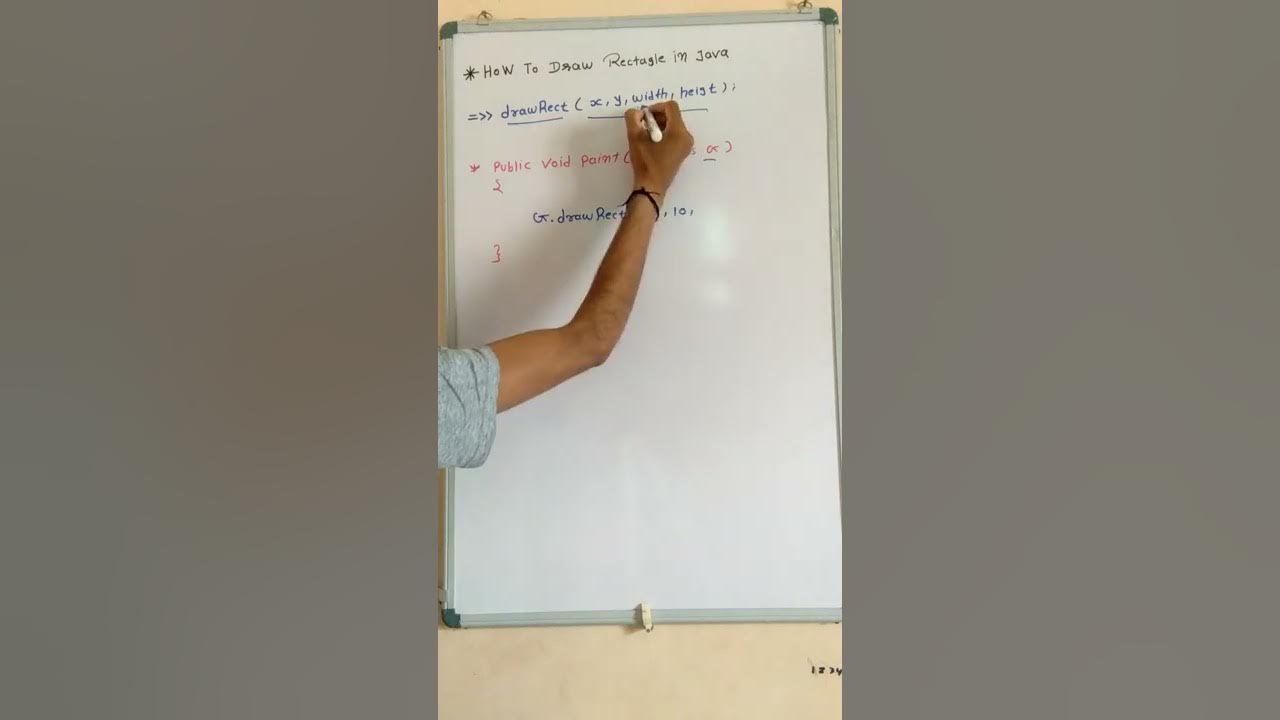 * HOW TO Draw Rectagle in Java
=>> drawRect ( x, y, width, heigt ) ;
* Public Void Paint ( G )
{
G. drawRect , 10,
}